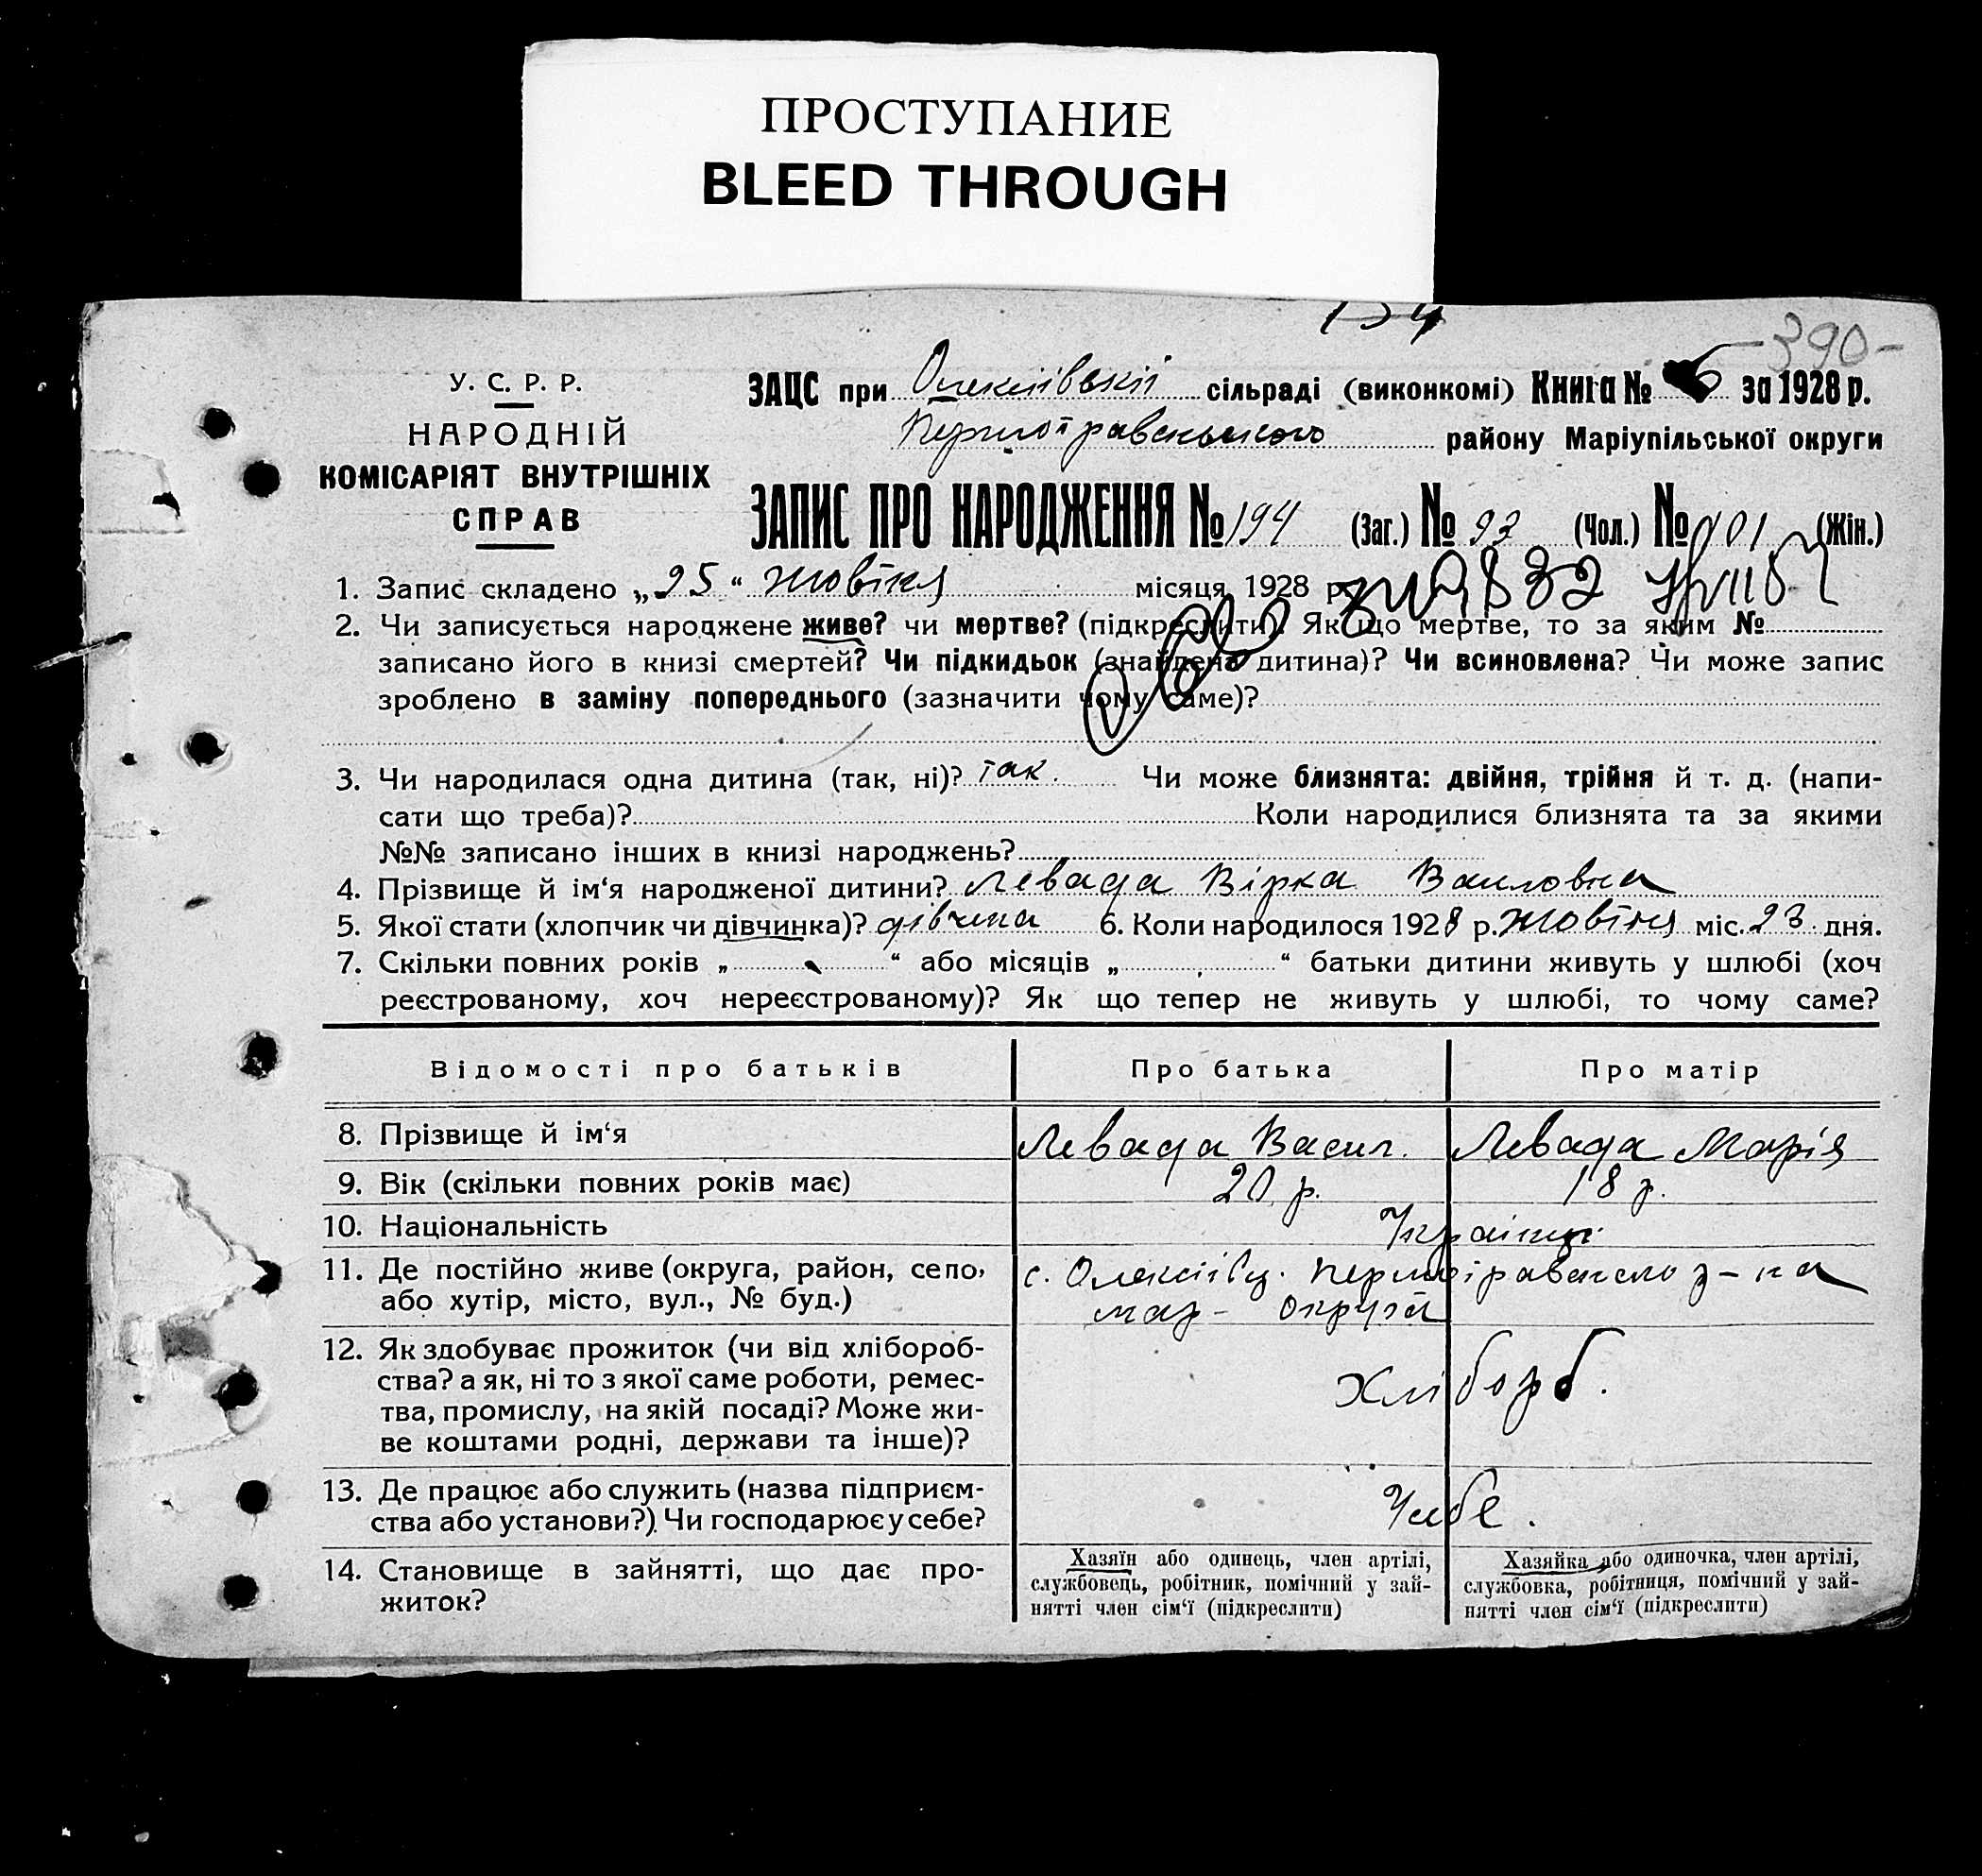 ПРОСТУПАНИЕ
BLEED THROUGH
134
-390-
У. С. Р. Р.
НАРОДНІЙ
КОМІСАРІЯТ ВНУТРІШНІХ
СПРАВ
ЗАЦС при Олексіївській сільраді (виконкомі) Книга № 6 за 1928 р.
Першотравенського району Маріупільської округи
ЗАПИС ПРО НАРОДЖЕННЯ № 194 (Заг.) № 93 (Чол.) № 101 (Жін.)
1. Запис складено „25“ жовтня місяця 1928 р.
2. Чи записується народжене живе? чи мертве? (підкреслити). Як що мертве, то за яким №
записано його в книзі смертей? Чи підкидьок (знайдена дитина)? Чи всиновлена? Чи може запис
зроблено в заміну попереднього (зазначити чому саме)?
3. Чи народилася одна дитина (так, ні)? так. Чи може близнята: двійня, трійня й т. д. (напи-
сати що треба)? Коли народилися близнята та за якими
№№ записано інших в книзі народжень?
4. Прізвище й ім‘я народженої дитини? Левада Вірка
5. Якої стати (хлопчик чи дівчинка)? дівчина 6. Коли народилося 1928 р. жовтня міс. 23. дня.
7. Скільки повних років „ “ або місяців „ “ батьки дитини живуть у шлюбі (хоч
реєстрованому, хоч нереєстрованому)? Як що тепер не живуть у шлюбі, то чому саме?
Відомості про батьків Про батька Про матір
8. Прізвище й ім‘я Левада Васил. Левада Марія
9. Вік (скільки повних років має) 20 р. 18 р.
10. Національність Українці
11. Де постійно живе (округа, район, село, с. Олексіївц. Першотравенсько р-на
або хутір, місто, вул., № буд.) мар- округи
12. Як здобуває прожиток (чи від хлібороб-
ства? а як, ні то з якої саме роботи, ремес- Хліборб.
тва, промислу, на якій посаді? Може жи-
ве коштами родні, держави та інше)?
13. Де працює або служить (назва підприєм-
ства або установи?). Чи господарює у себе? У себе.
14. Становище в зайнятті, що дає про-
житок?
Хазяїн або одинець, член артілі,
службовець, робітник, помічний у зай-
нятті член сім‘ї (підкреслити)
Хазяйка або одиночка, член артілі,
службовка, робітниця, помічний у зай-
нятті член сім‘ї (підкреслити)